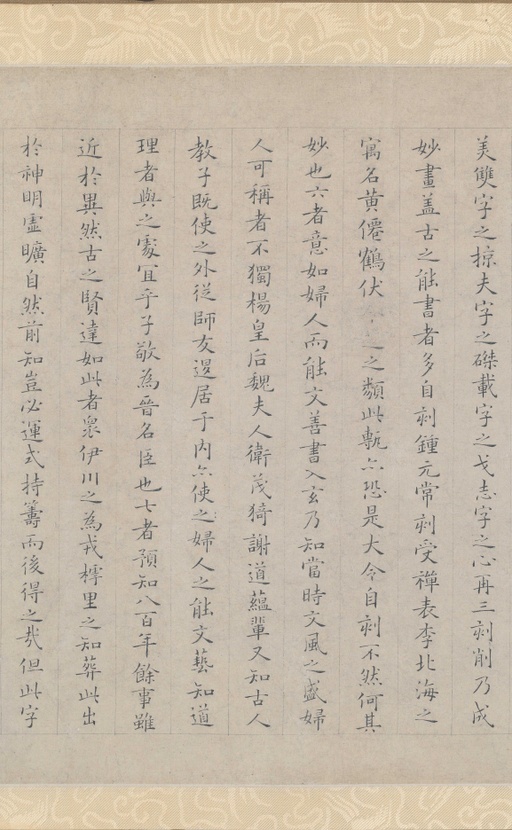 美雙字之掠夫字之磔載字之戈志字之心再三刻削乃成
妙畫盖古之能書者多自刻鍾元常刻受禪表李北海之
寓名黃僊鶴伏之之類此甎亦恐是大令自刻不然何其
妙也六者意如婦人而能文善書入玄乃知當時文風之盛婦
人可稱者不獨楊皇后魏夫人衛茂猗謝道蘊輩又知古人
教子既使之外從師友退居于内亦使之婦人之能文藝知道
理者與之處宜乎子敬為晉名臣也七者預知八百年餘事雖
近於異然古之賢達如此者衆伊川之為戎樗里之知葬此出
於神明虛曠自然前知豈必運式持籌而後得之哉但此字